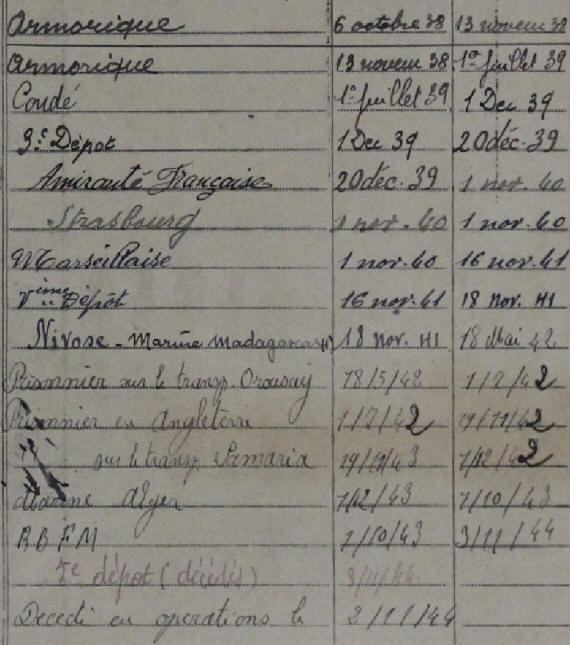 Armorique 6 octobre 38 13 novem 38
Armorique 13 novem 38 1er Juillet 39
Condé 1er Juillet 39 1 Dec 39
3e Dépot 1 Dec 39 20 déc. 39
Amirauté Française 20 déc. 39 1 nov. 40
Strasbourg 1 nov. 40 1 nov. 40
Marseillaise 1 nov. 40 16 nov. 41
Vème Dépôt 16 nov. 41 18 Nov. 41
Nivose - Marine Madagascar 18 Nov. 41 18 Mai 42
Prisonnier sur le transp. Oronsay 18/5/42 1/7/42
Prisonnier en Angleterre 1/7/42 19/11/42
sur le transp. Samaria 19/11/43 1/12/42
Marine Alger 1/12/43 1/10/43
RBFM 1/10/43 3/11/44
5e dépot (décédés) 3/11/44
Decedé en operations le 3/11/44